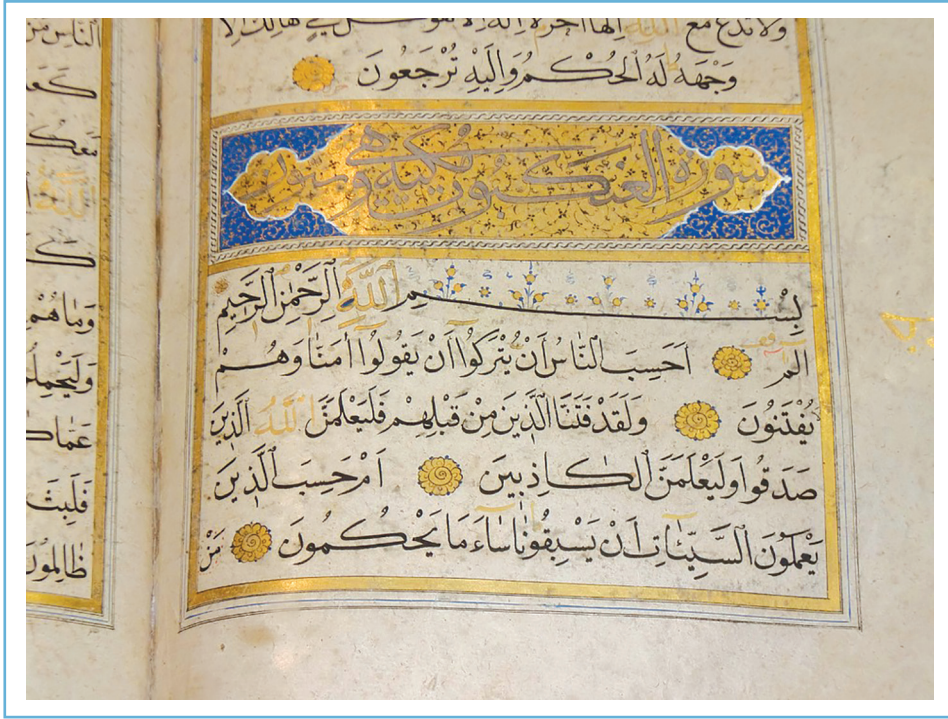 ولا تدع مع الله الها اخر لا اله الا هو كل شيء هالك الا
وَجْهَهُ لَهُ الْحُكْمُ وَاِلَيْهِ تُرْجَعُونَ
سورة العنكبوت مكية وهي
بِسْمِ اللّٰهِ الرَّحْمٰنِ الرَّحِيمِ
الم اَحَسِبَ النَّاسُ اَنْ يُتْرَكُوا اَنْ يَقُولُوا اٰمَنَّا وَهُمْ
يُفْتَنُونَ وَلَقَدْ فَتَنَّا الَّذِينَ مِنْ قَبْلِهِمْ فَلَيَعْلَمَنَّ اللّٰهُ الَّذِينَ
صَدَقُوا وَلَيَعْلَمَنَّ الْكَاذِبِينَ اَمْ حَسِبَ الَّذِينَ
يَعْمَلُونَ السَّيِّئَاتِ اَنْ يَسْبِقُونَا سَاءَ مَا يَحْكُمُونَ مَنْ
الناس من
الله
وَمَا هُمْ
فَلَبِثَ
ظَالِمُونَ